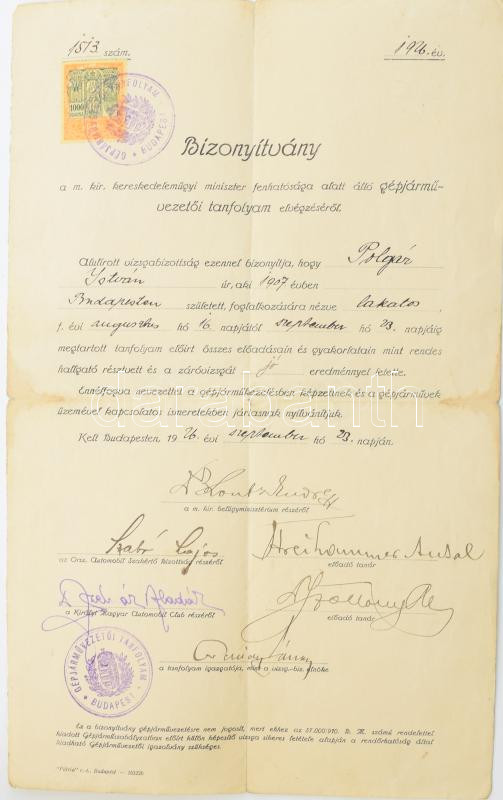 1513 szám.
1926. év.
1000
GÉPJÁRMŰVEZETŐI TANFOLYAM BUDAPEST
Bizonyítvány
a m. kir. kereskedelemügyi miniszter fenhatósága alatt álló gépjármű-
vezetői tanfolyam elvégzéséről.
Alulirott vizsgabizottság ezennel bizonyítja, hogy Polgár
István úr, aki 1907 évben
Budapesten született, foglalkozására nézve lakatos,
f. évi augusztus hó 16. napjától szeptember hó 23. napjáig
megtartott tanfolyam előirt összes előadásain és gyakorlatain mint rendes
hallgató résztvett és a záróvizsgát jó eredménnyel letette.
Ennélfogva nevezettet a gépjárműkezelésben képzettnek és a gépjárművek
üzemével kapcsolatos ismeretekben jártasnak nyilvánítjuk.
Kelt Budapesten, 1926. évi szeptember hó 23. napján.
darabanth
a m. kir. belügyminisztérium részéről
Szabó Lajos
az Orsz. Automobil Szakértő Bizottság részéről
előadó tanár
a Királyi Magyar Automobil Club részéről
előadó tanár
a tanfolyam igazgatója, mint a vizsg.-biz. elnöke
GÉPJÁRMŰVEZETŐI TANFOLYAM BUDAPEST
Ez a bizonyítvány gépjárművezetésre nem jogosít, mert ehhez az 57.000/910. B. M. számú rendelettel
kiadott Gépjárműszabályzatban előírt külön képesítő vizsga sikeres letétele alapján a rendőrhatóság által
kiadható Gépjárművezetői igazolvány szükséges.
"Pátria" r.-t., Budapest —